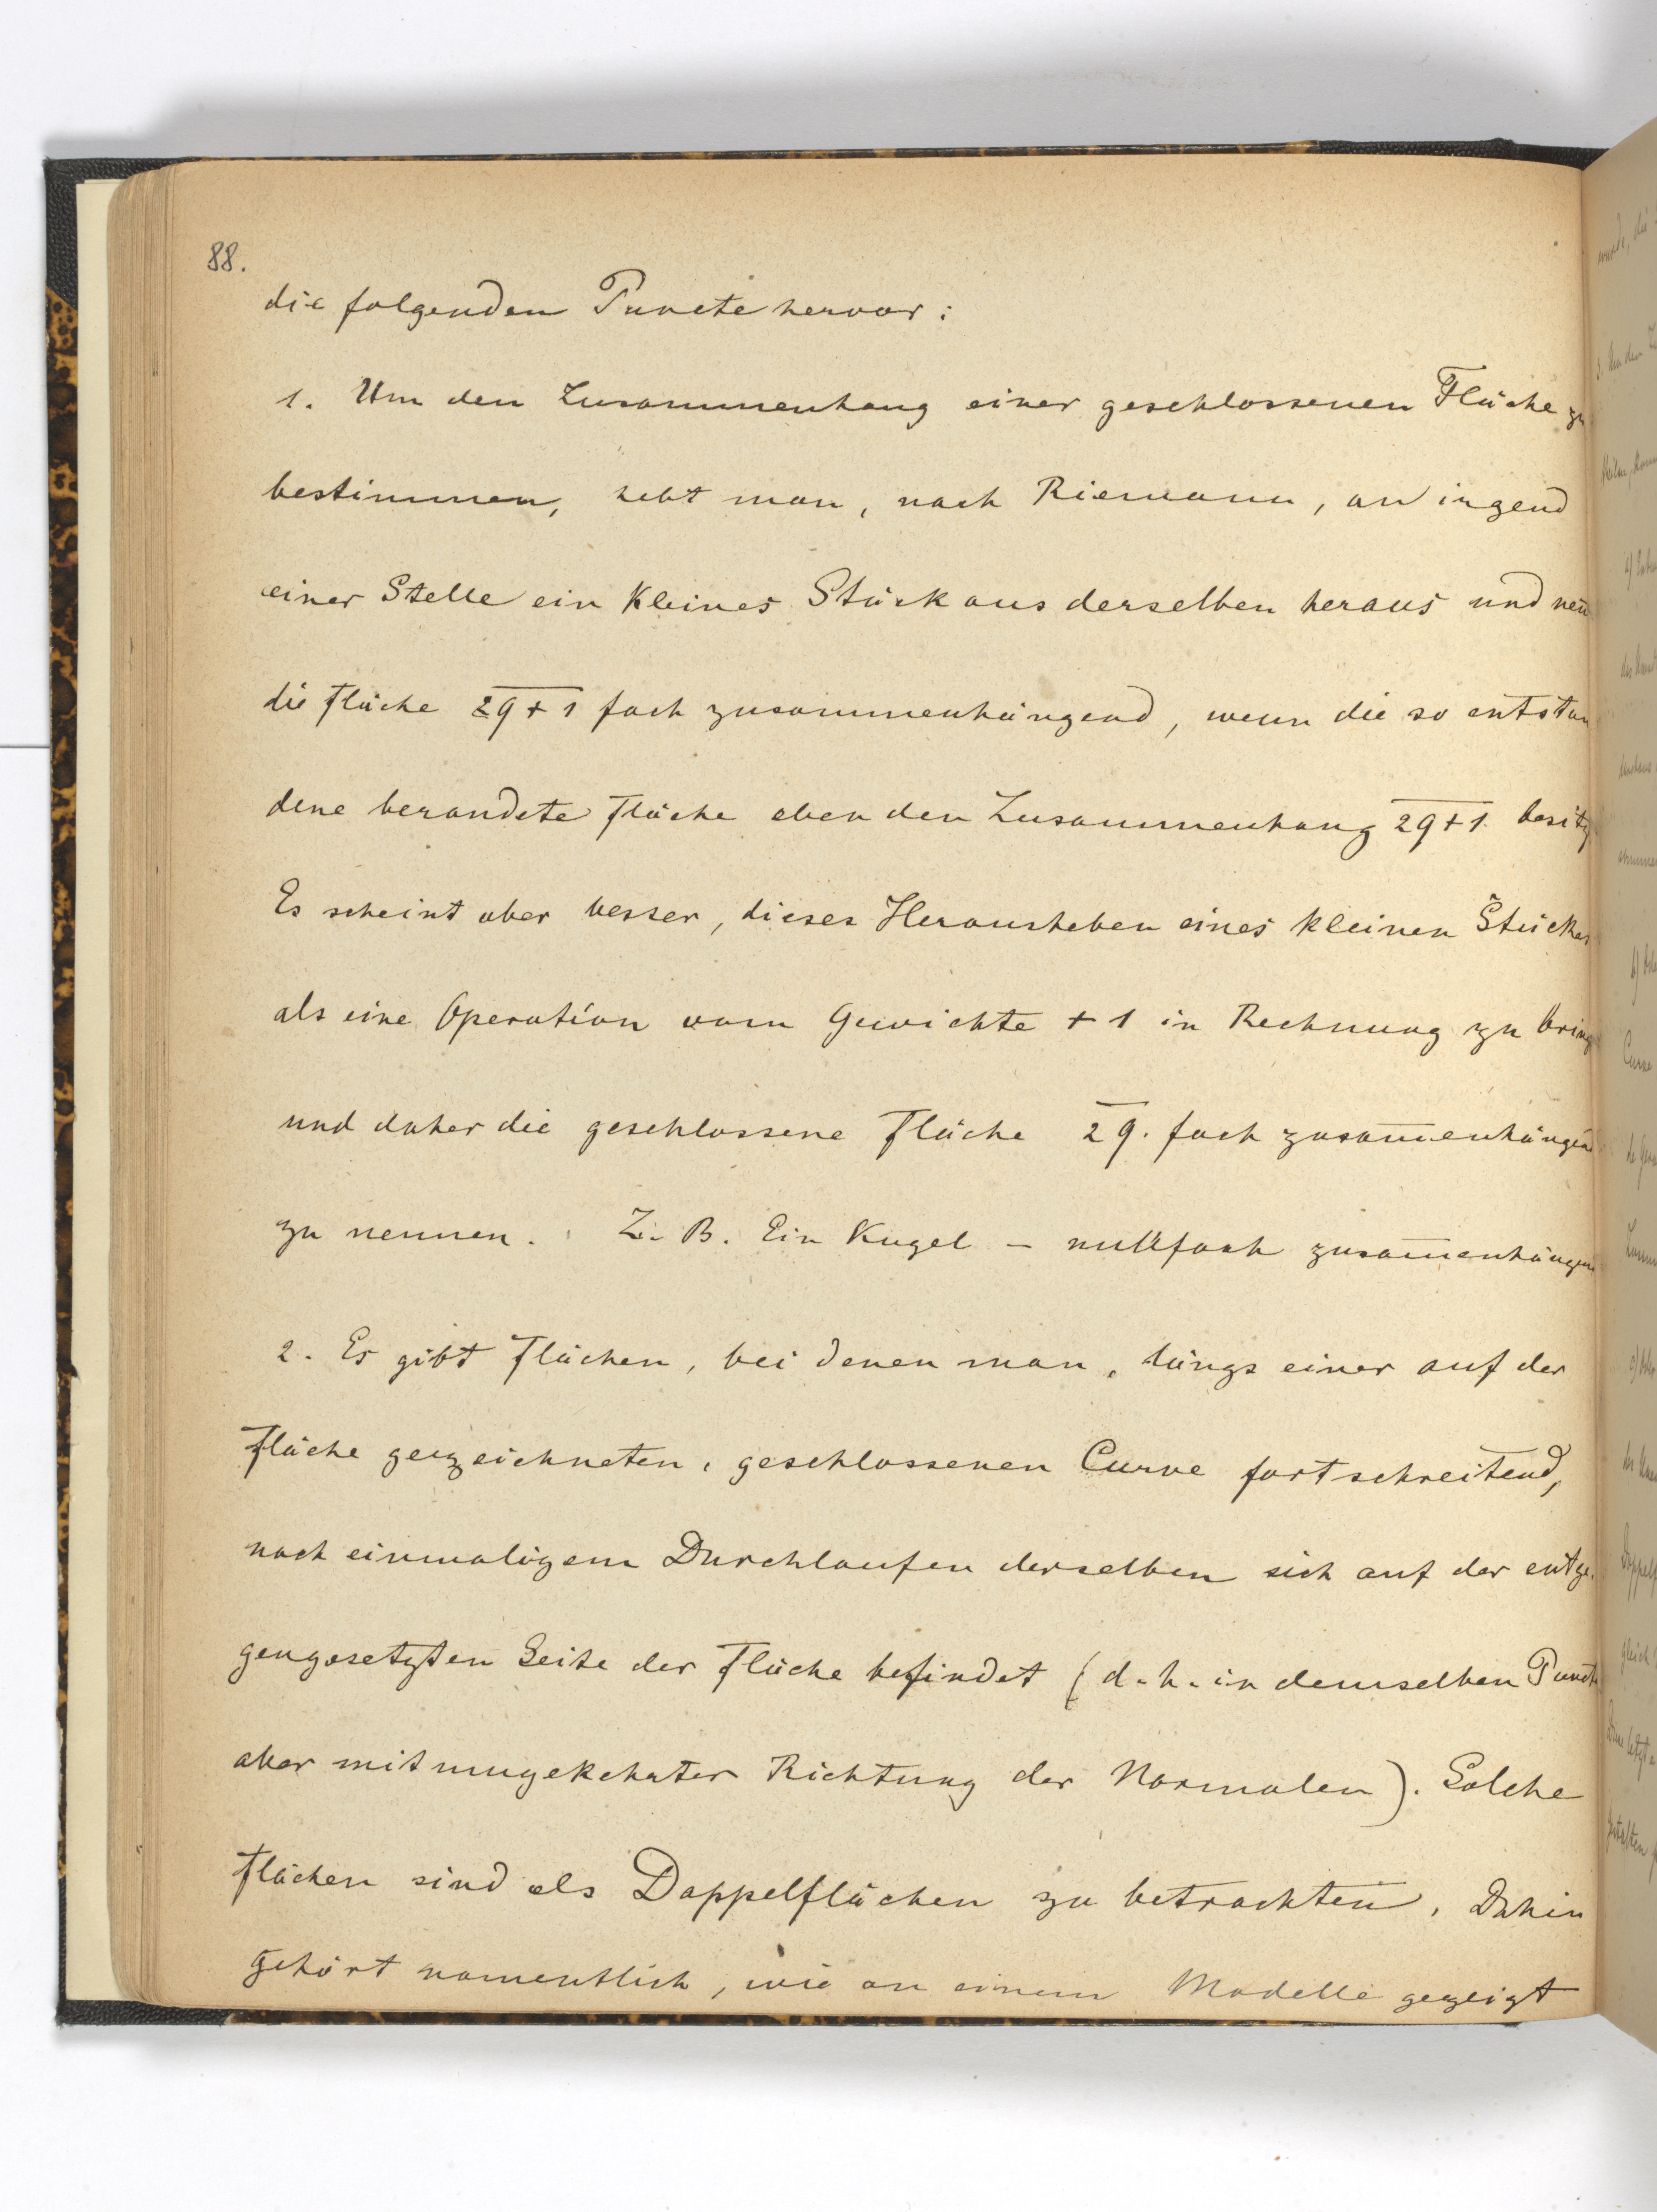 88.
die folgenden Puncte hervor:
1. Um den Zusammenhang einer geschlossenen Fläche zu
bestimmen, hebt man, nach Riemann, an irgend
einer Stelle ein kleines Stück aus derselben heraus und nen
die Fläche 2q+1 fach zusammenhängend, wenn die so entstan
dene berandete Fläche eben den Zusammenhang 2q+1 besitz
Es scheint aber besser, dieses Herausheben eines kleinen Stückes
als eine Operation vom Gewichte +1 in Rechnung zu bring
und daher die geschlossene Fläche 2q. fach zusam̅enhängend
zu nennen. Z. B. Ein Kugel – nullfach zusam̅enhängen
2. Es gibt Flächen, bei denen man, längs einer auf der
Fläche gezeichneten, geschlossenen Curve fortschreitend,
nach einmaligem Durchlaufen derselben sich auf der entge
gengesetzten Seite der Fläche befindet (d. h. in demselben Puncte
aber mit umgekehrter Richtung der Normalen). Solche
Flächen sind als Doppelflächen zu betrachten. Dahin
gehört namentlich, wie an einem Modelle gezeigt